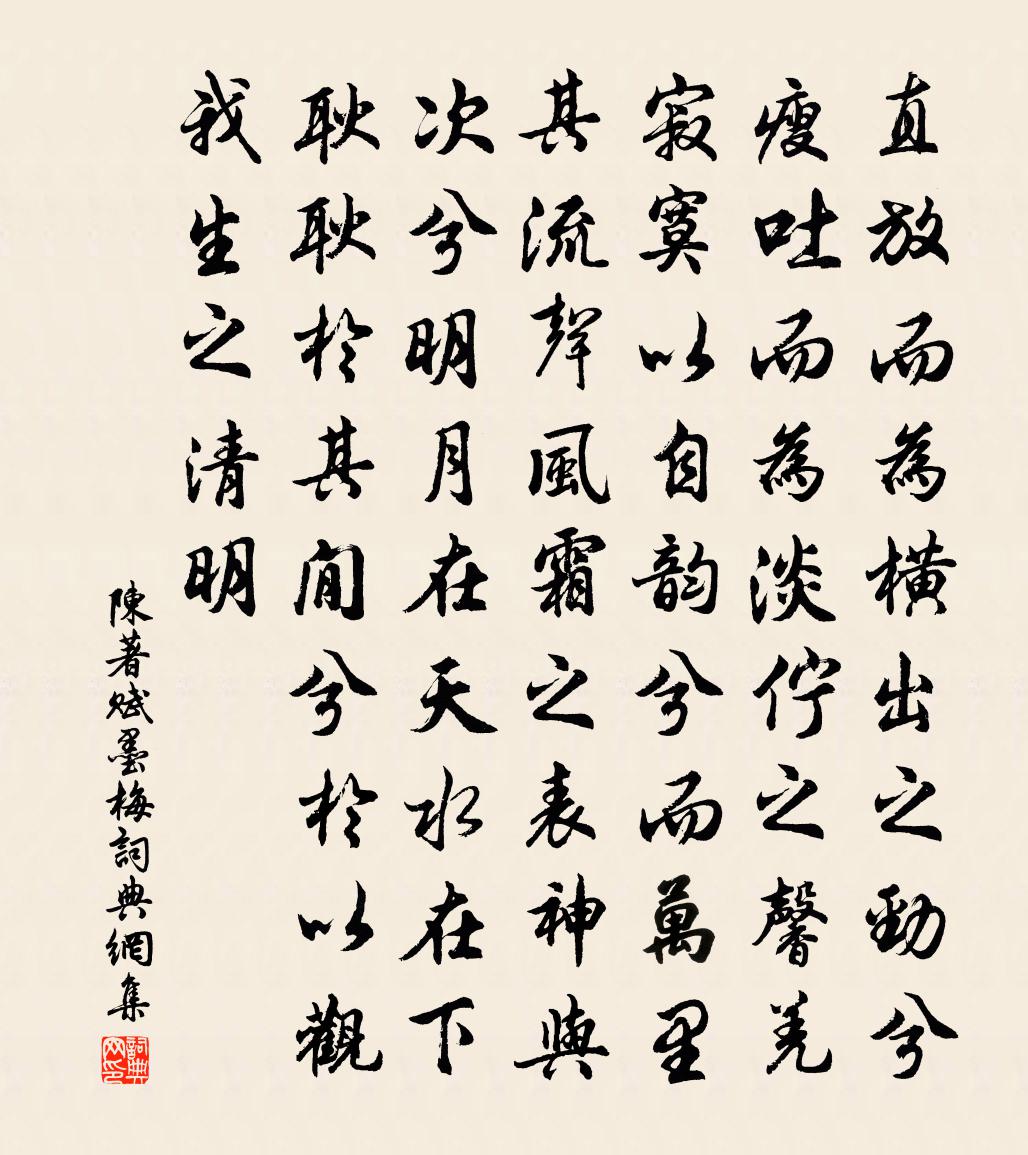 直放而為橫出之勁兮
瘦吐而為淡佇之馨羌
寂寞以自韵兮而萬里
其流聲風霜之表神與
次兮明月在天水在下
耿耿於其間兮於以觀
我生之清明
陳著賦墨梅詞典網集
詞典网印